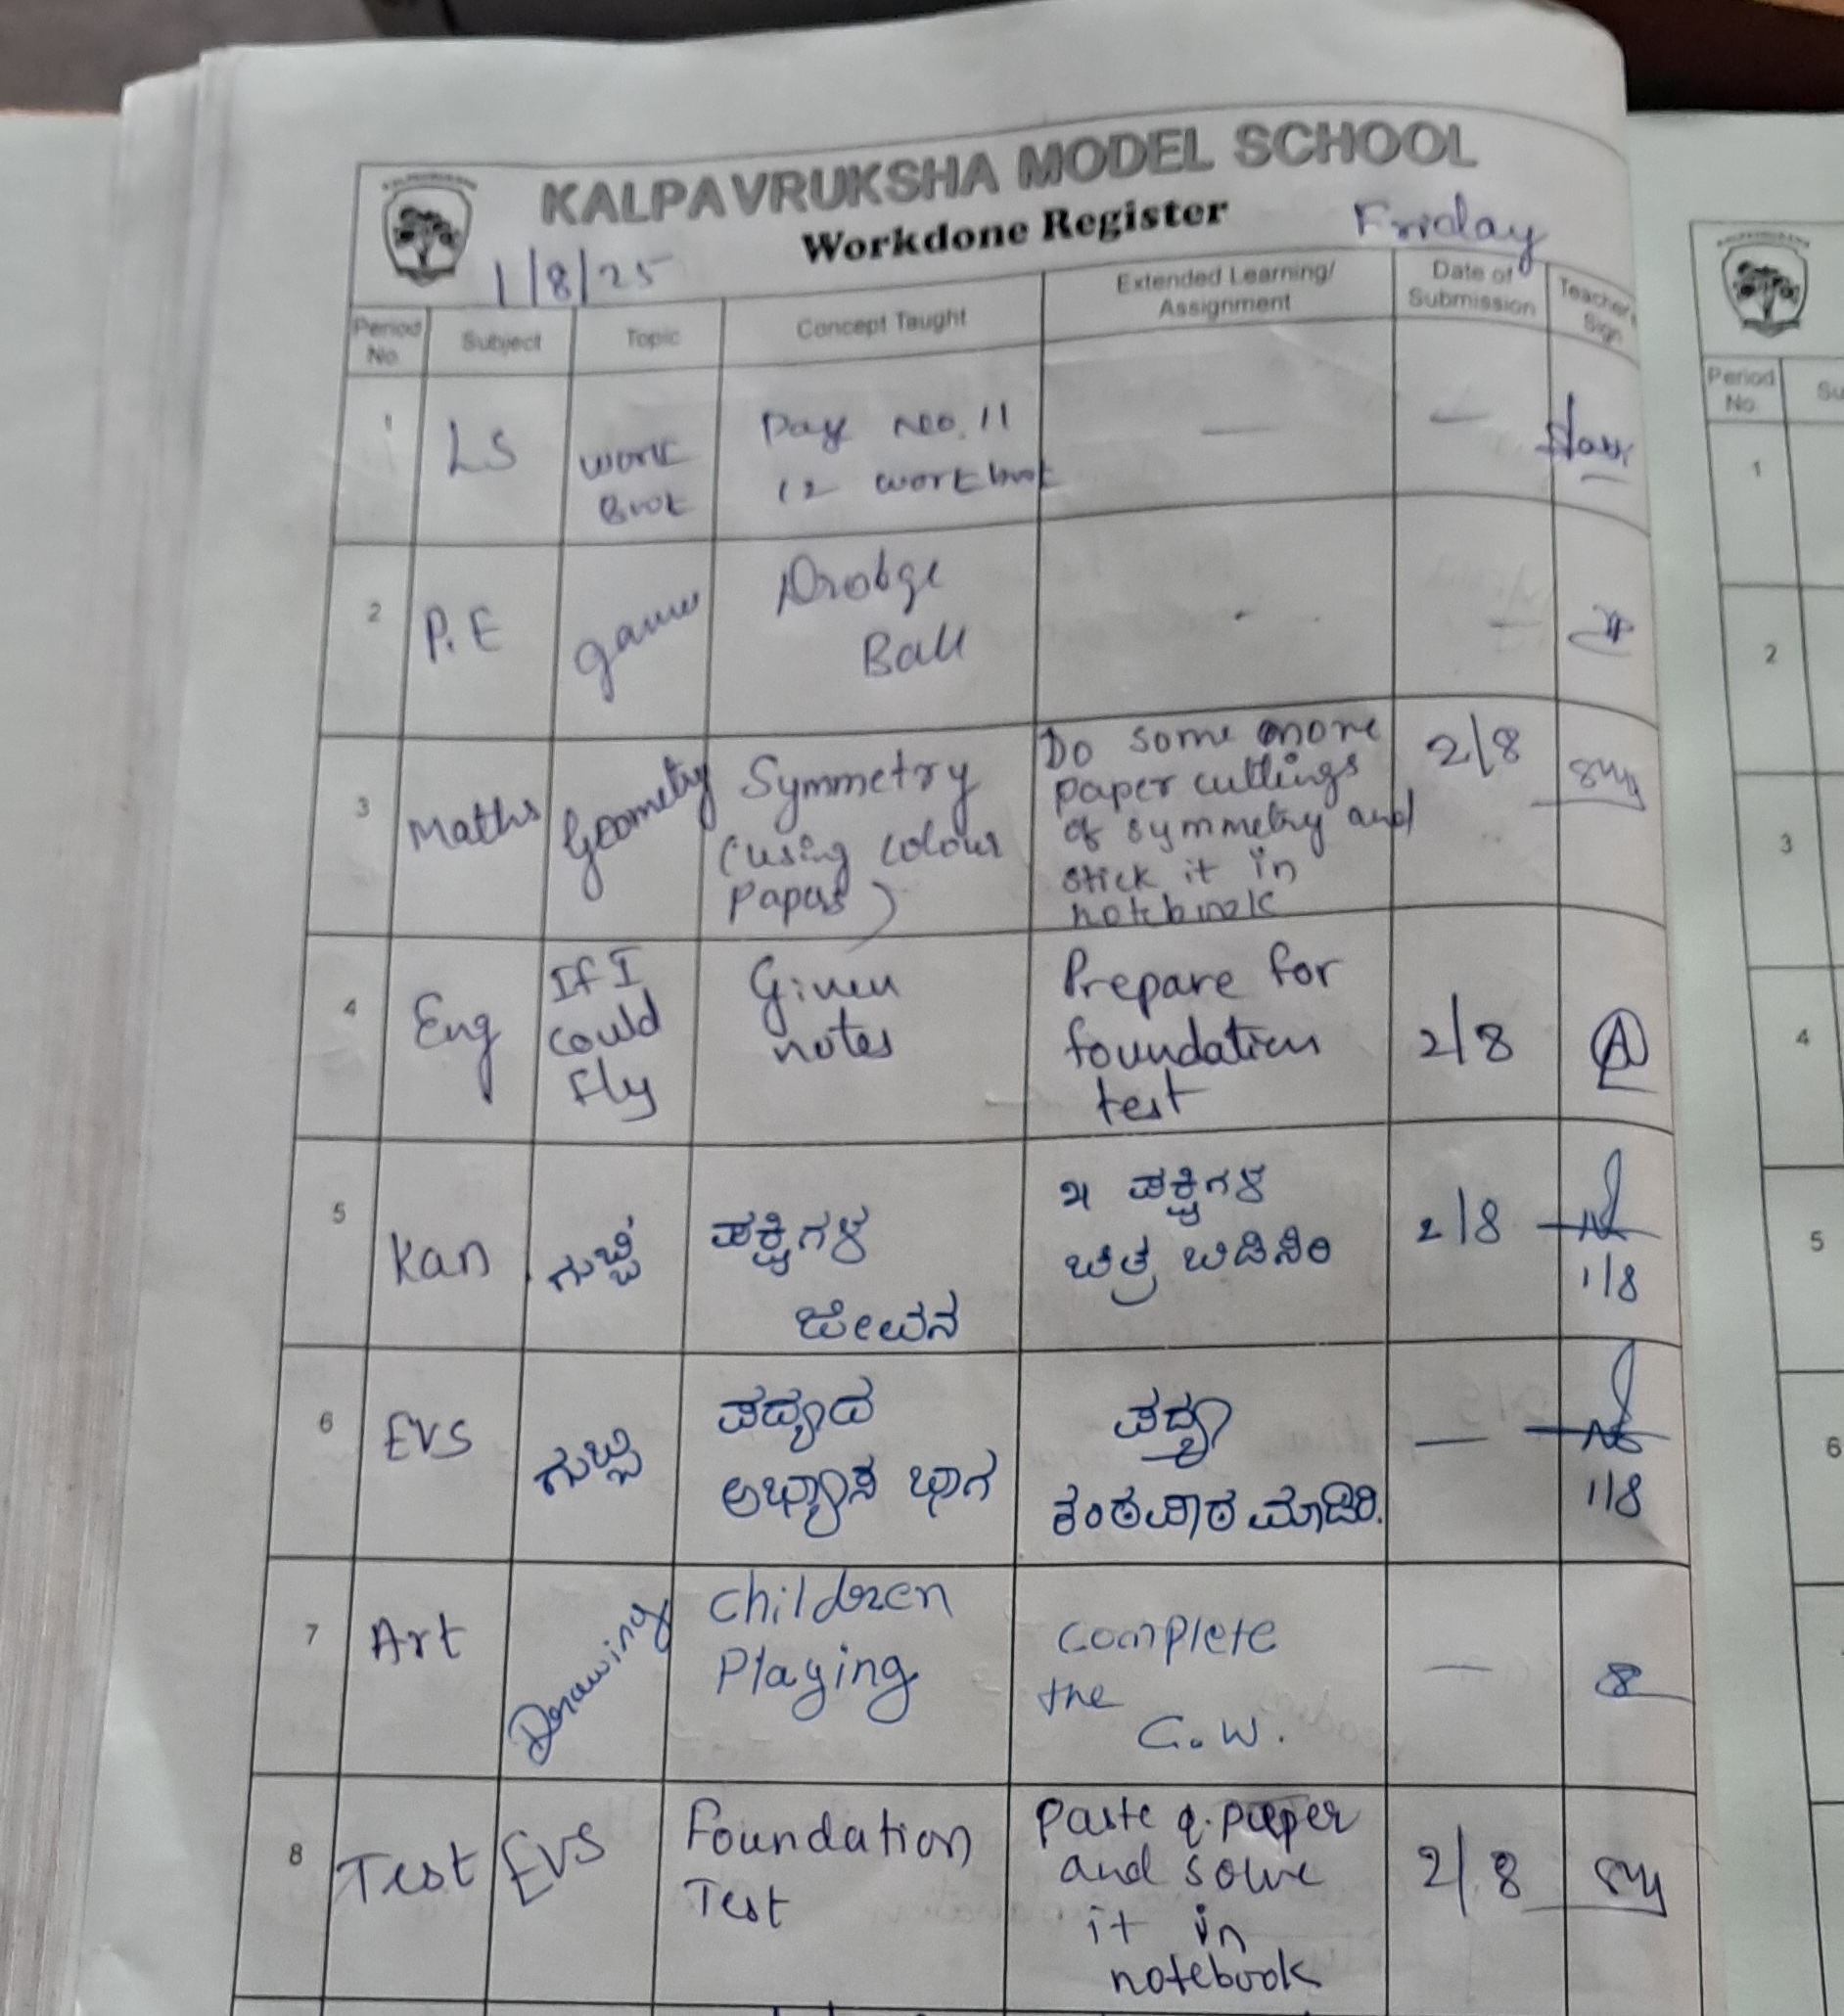 KALPAVRUKSHA MODEL SCHOOL
Workdone Register
1/8/25
Friday
Period No.
Subject
Topic
Concept Taught
Extended Learning/
Assignment
Date of
Submission
Teacher's
Sign
1
LS
work
Book
Page no. 11
12 workbook
—
—
2
P.E
game
Drobge
Ball
-
—
3
Maths
Geometry
Symmetry
(using colour
papers)
Do some more
paper cuttings
of symmetry and
stick it in
notebook
2/8
4
Eng
If I
could
fly
Given
notes
Prepare for
foundation
test
2/8
5
Kan
ಗುಬ್ಬಿ
ಪಕ್ಷಿಗಳ
ಜೀವನ
ಪಕ್ಷಿಗಳ
ಚಿತ್ರ ಬಿಡಿಸಿರಿ
2/8
1/8
6
EVS
ಗುಬ್ಬಿ
ಪದ್ಯದ
ಅಭ್ಯಾಸ ಭಾಗ
ಪದ್ಯ
ಕಂಠಪಾಠ ಮಾಡಿರಿ.
—
1/8
7
Art
Drawing
Children
Playing
Complete
the
C.W.
—
8
Test
EVS
Foundation
Test
paste q.paper
and solve
it in
notebook
2/8
Period
No
Su
1
2
3
4
5
6